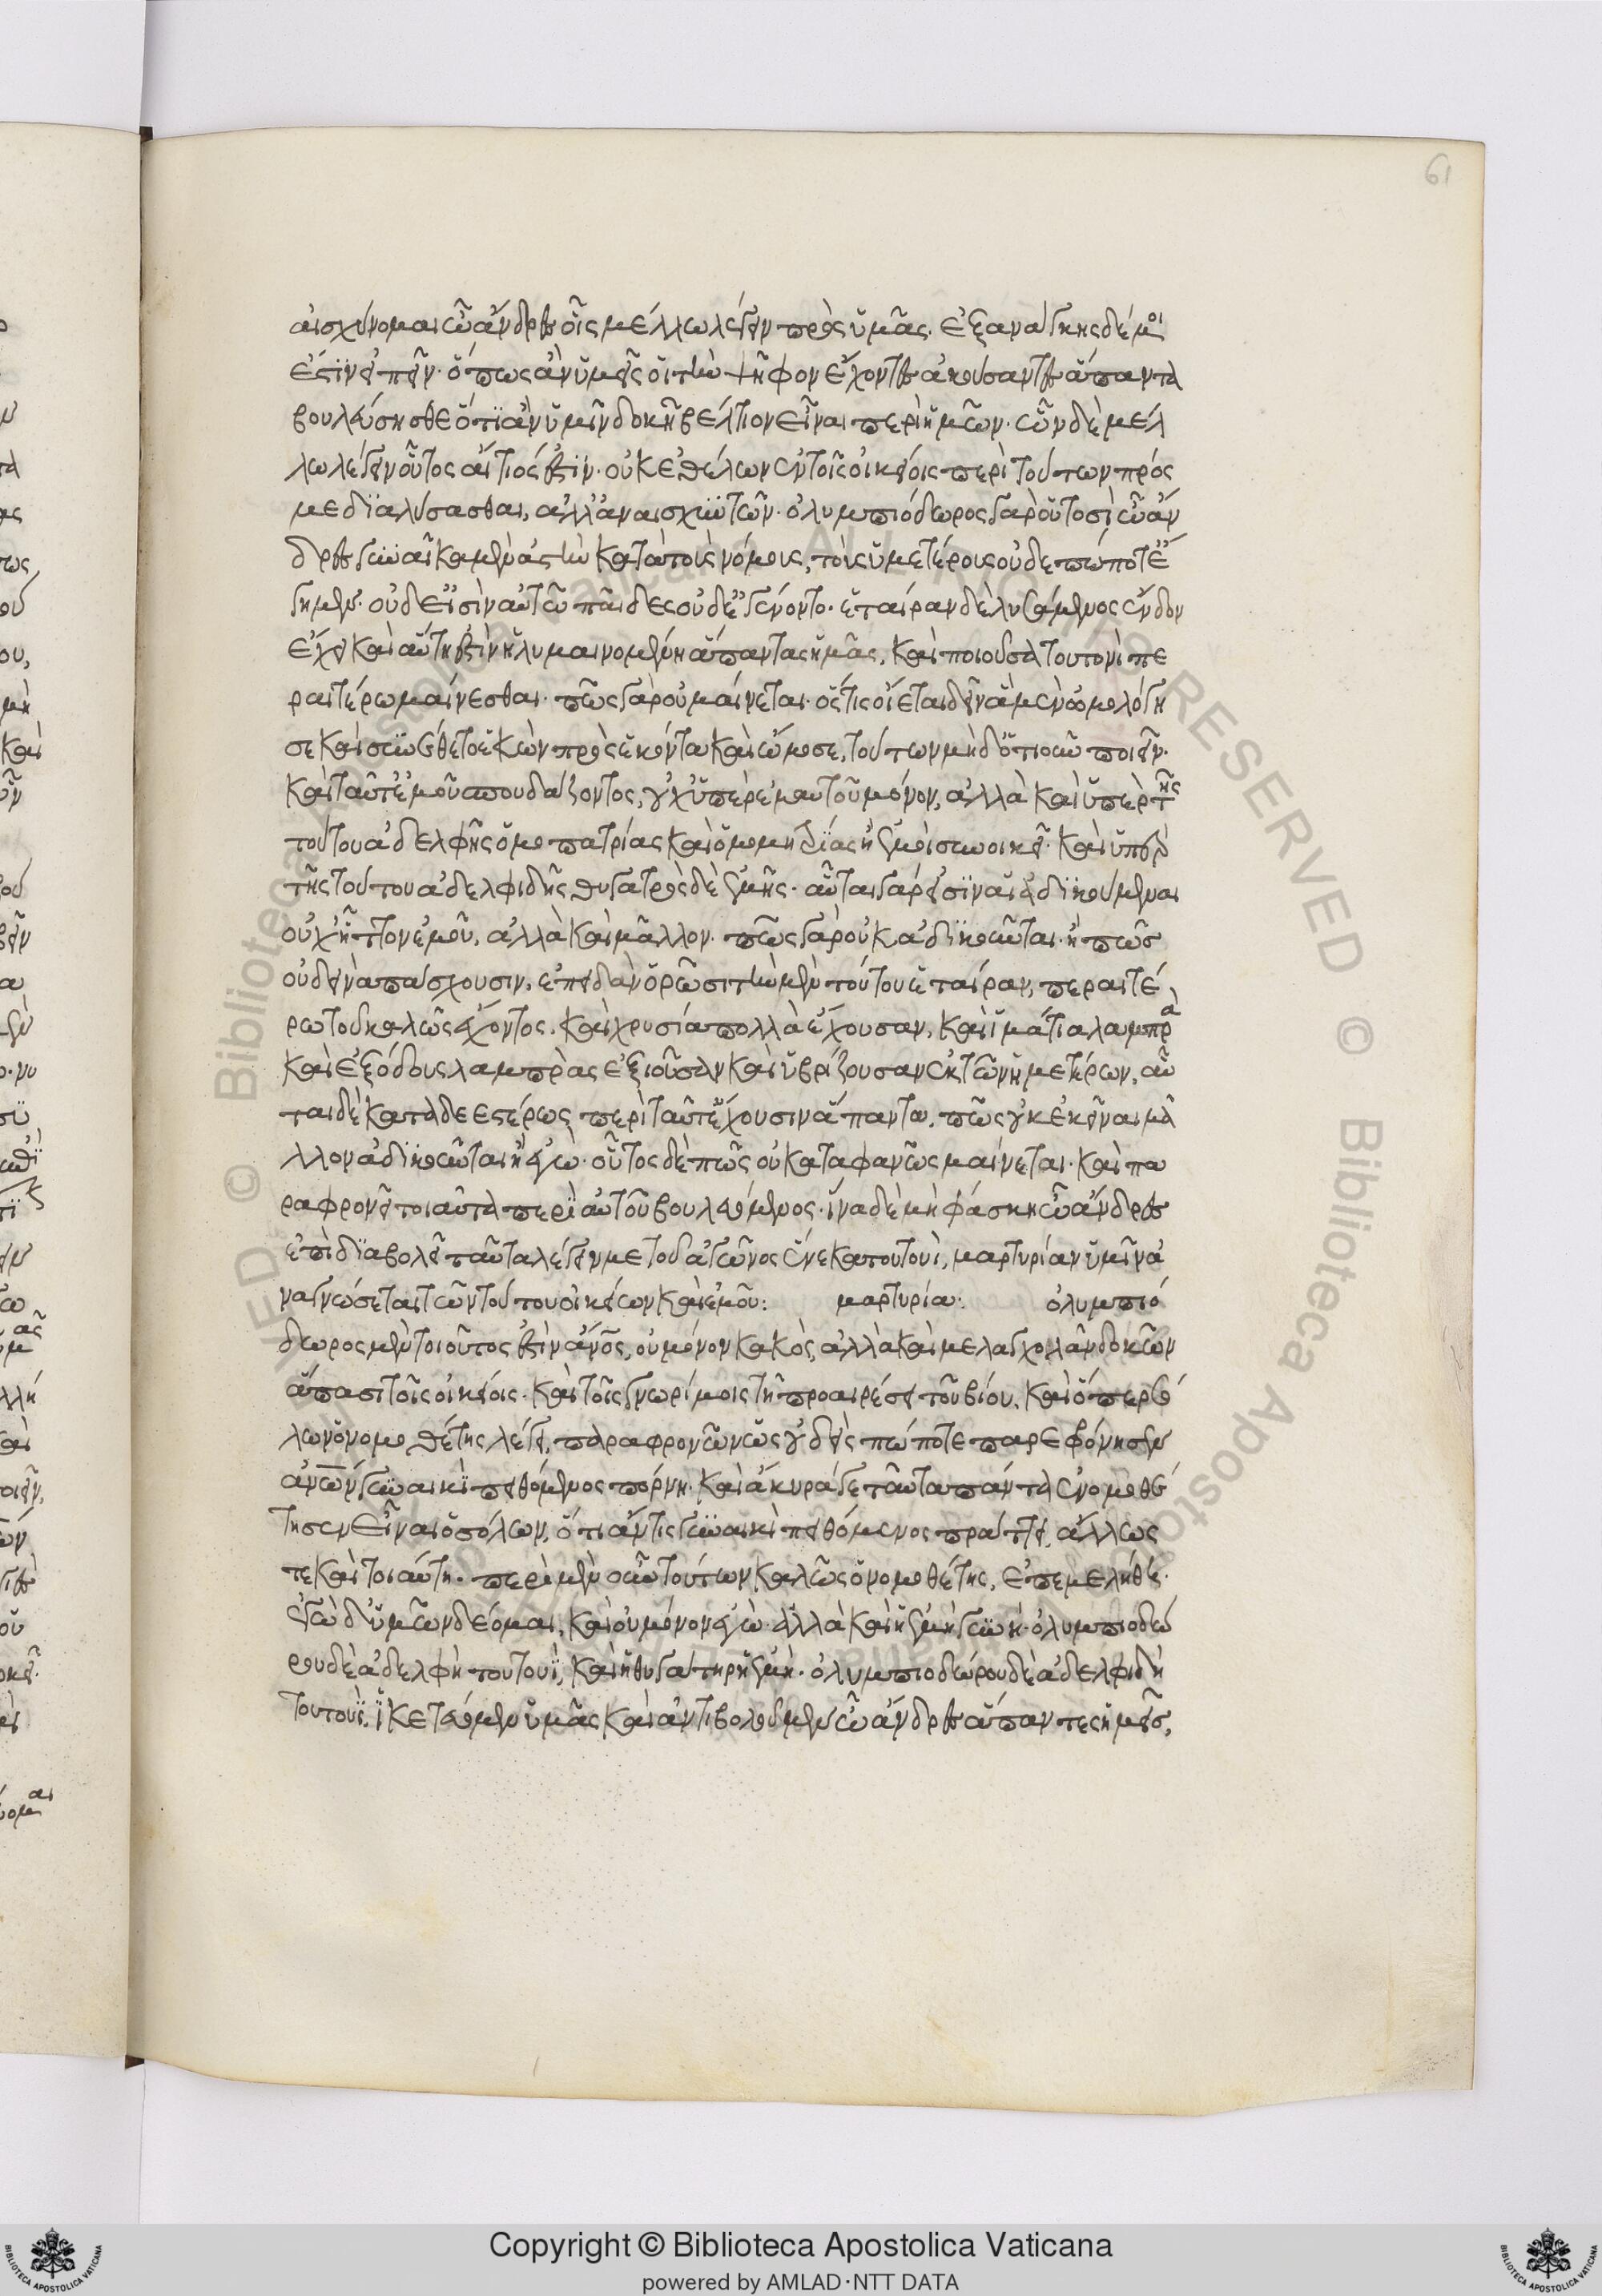 61
αἰσχύνομαι ὦ ἄνδρες οἷς μέλλω λέγειν πρὸς ὑμᾶς. ἐξ ἀνάγκης δέ μοι
ἐστὶν εἰπεῖν. ὅπως ἂν ὑμεῖς οἱ τὴν ψῆφον ἔχοντες ἀκούσαντες ἅπαντα
βουλεύσησθε ὅτι ἂν ὑμῖν δοκῇ βέλτιον εἶναι περὶ ἡμῶν. ὧν δὲ μέλ
λω λέγειν οὗτος αἴτιός ἐστιν. οὐκ ἐθέλων ἐν τοῖς οἰκείοις περὶ τούτων πρός
με διαλύσασθαι, ἀλλ' ἀναισχυντῶν. ὀλυμπιόδωρος γὰρ οὑτοσὶ ὦ ἄν
δρες γυναῖκα μὲν ἀστὴν κατὰ τοὺς νόμους, τοὺς ὑμετέρους οὐδεπώποτε ἔ
γημεν. οὐδ' εἰσὶν αὐτῷ παῖδες οὐδ' ἐγένοντο. ἑταίραν δὲ λυσάμενος ἔνδον
ἔχει καὶ αὕτη ἐστὶν ἡ λυμαινομένη ἅπαντας ἡμᾶς, καὶ ποιοῦσα τουτονὶ πε
ραιτέρω μαίνεσθαι. πῶς γὰρ οὐ μαίνεται. ὅστις οἴεται δεῖν ἃ μὲν ὡμολόγη
σε καὶ συνέθετο ἑκὼν πρὸς ἑκόντα καὶ ὤμοσε, τούτων μὴδ' ὁτιοῦν ποιεῖν.
καὶ ταῦτ' ἐμοῦ σπουδάζοντος, οὐχ ὑπὲρ ἐμαυτοῦ μόνον, ἀλλὰ καὶ ὑπὲρ τῆς
τούτου ἀδελφῆς ὁμοπατρίας καὶ ὁμομητρίας ἣ ἐμοὶ συνοικεῖ. καὶ ὑπὲρ
τῆς τούτου ἀδελφιδῆς θυγατρὸς δὲ ἐμῆς. αὗται γάρ εἰσιν αἱ ἀδικούμεναι
οὐχ ἧττον ἐμοῦ, ἀλλὰ καὶ μᾶλλον. πῶς γὰρ οὐκ ἀδικοῦνται. ἢ πῶς
οὐ δεινὰ πάσχουσιν, ἐπειδὰν ὁρῶσι τὴν μὲν τούτου ἑταίραν, περαιτέ
ρω τοῦ καλῶς ἔχοντος. καὶ χρυσία πολλὰ ἔχουσαν, καὶ ἱμάτια λαμπρὰ
καὶ ἐξόδους λαμπρὰς ἐξιοῦσαν καὶ ὑβρίζουσαν ἐκ τῶν ἡμετέρων, αὗ
ται δὲ καταδεεστέρως περὶ ταῦτ' ἔχουσιν ἅπαντα. πῶς οὐκ ἐκεῖναι μᾶ
λλον ἀδικοῦνται ἢ ἐγώ. οὗτος δὲ πῶς οὐ καταφανῶς μαίνεται. καὶ πα
ραφρονεῖ τοιαῦτα περὶ αὐτοῦ βουλευόμενος. ἵνα δὲ μὴ φάσκη ὦ ἄνδρες
ἐπὶ διαβολῇ ταῦτα λέγειν με τοῦ ἀγῶνος ἕνεκα τουτουὶ, μαρτυρίαν ὑμῖν ἀ
ναγνώσεται τῶν τούτου οἰκείων καὶ ἐμοῦ: μαρτυρία: ὀλυμπιό
δωρος μὲν τοιοῦτος ἐστὶν ἄνος, οὐ μόνον κακὸς, ἀλλὰ καὶ μελαγχολᾶν δοκῶν
ἅπασι τοῖς οἰκείοις. καὶ τοῖς γνωρίμοις τῇ προαιρέσει τοῦ βίου, καὶ ὅπερ σό
λων ὁ νομοθέτης λέγει, παραφρονῶν ὡς οὐδεὶς πώποτε παρεφρόνησεν
ἀνων γυναικὶ πειθόμενος πόρνη. καὶ ἄκυρά γε ταῦτα πάντα ἐνομοθέ
τησεν εἶναι ὁ σόλων, ὅ τι ἄν τις γυναικὶ πειθόμενος πράττει, ἄλλως
τε καὶ τοιαύτη. περὶ μὲν οὖν τούτων καλῶς ὁ νομοθέτης, ἐπεμελήθη.
ἐγὼ δ' ὑμῶν δέομαι, καὶ οὐ μόνον ἐγὼ ἀλλὰ καὶ ἡ ἐμὴ γυνὴ. ὀλυμπιοδώ
ρου δὲ ἀδελφὴ τουτουῒ, καὶ ἡ θυγάτηρ ἡ ἐμὴ. ὀλυμπιοδώρου δὲ ἀδελφιδῆ
τουτουῒ. ἱκετεύομεν ὑμᾶς καὶ ἀντιβολοῦμεν ὦ ἄνδρες ἅπαντες ἡμεῖς,
Copyright © Biblioteca Apostolica Vaticana
powered by AMLAD·NTT DATA